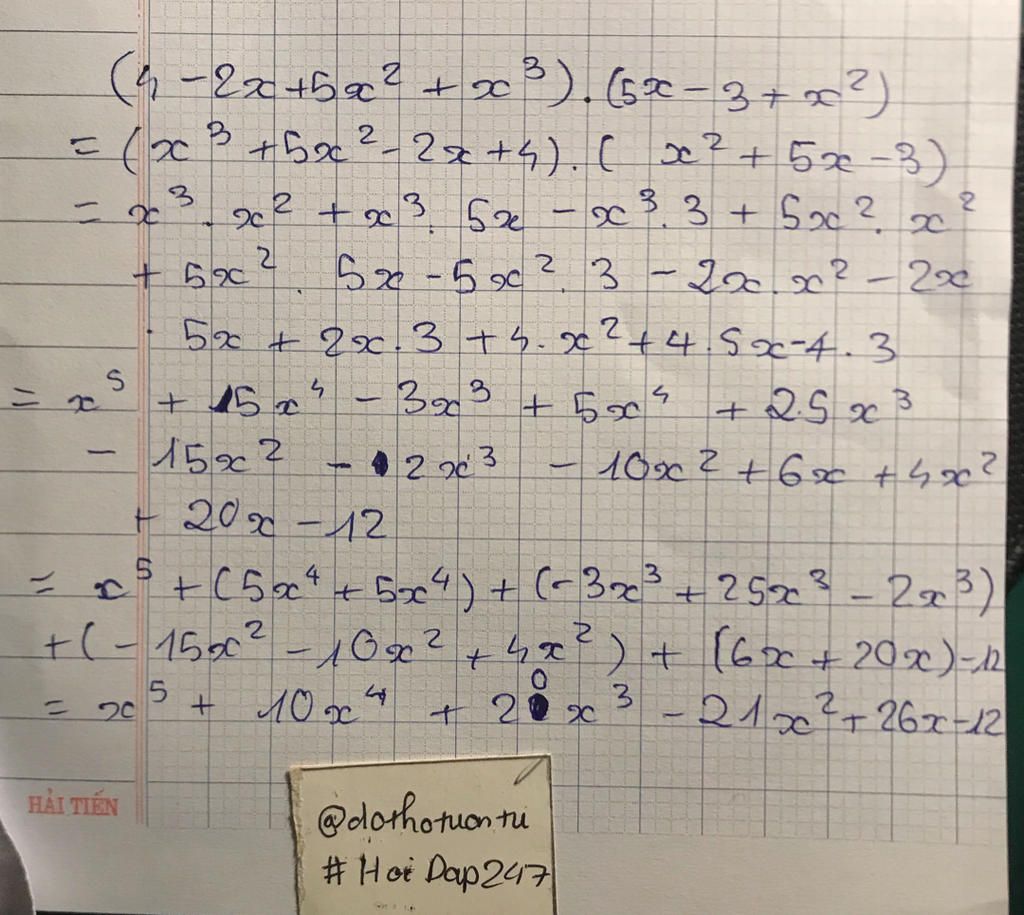 (4 - 2x + 5x² + x³) . (5x - 3 + x²)
= (x³ + 5x² - 2x + 4) . ( x² + 5x - 3)
= x³ . x² + x³ . 5x - x³ . 3 + 5x² . x²
+ 5x² . 5x - 5x² . 3 - 2x . x² - 2x
. 5x + 2x . 3 + 4 . x² + 4 . 5x - 4 . 3
= x⁵ + 5x⁴ - 3x³ + 5x⁴ + 25x³
- 15x² - 2x³ - 10x² + 6x + 4x²
+ 20x - 12
= x⁵ + (5x⁴ + 5x⁴) + (-3x³ + 25x³ - 2x³)
+ (-15x² - 10x² + 4x²) + (6x + 20x) - 12
= x⁵ + 10x⁴ + 20x³ - 21x² + 26x - 12
HẢI TIẾN
@dothotuontu
# Hoi Dap247